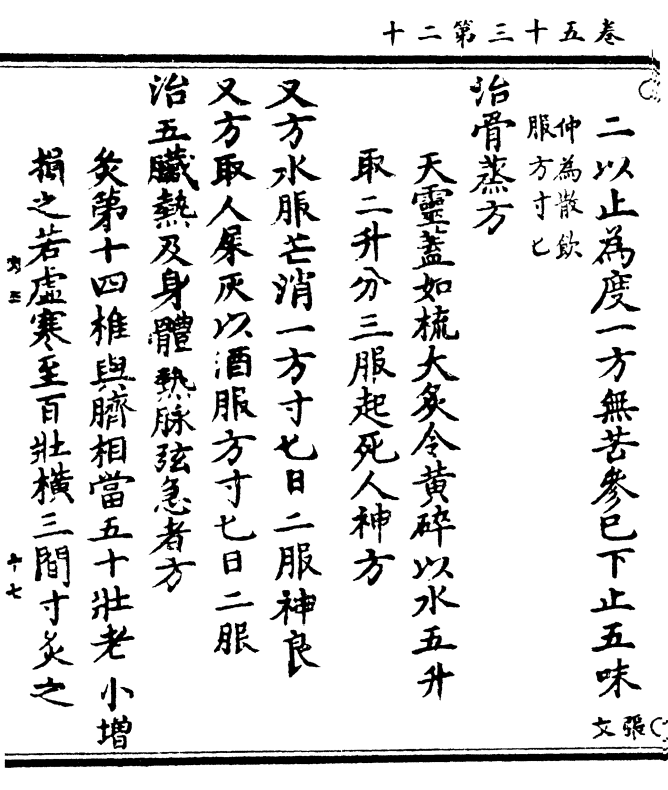 十二第三十五卷
二以止為度一方無苦參巳下止五味張文
仲為散飲
服方寸匕
治骨蒸方
天靈蓋如梳大炙令黄碎以水五升
取二升分三服起死人神方
又方水服芒消一方寸匕日二服神良
又方取人屎灰以酒服方寸匕日二服
治五臟熱及身體熱脉弦急者方
灸第十四椎與臍相當五十壯老小增
損之若虛寒至百壯橫三間寸灸之
十七